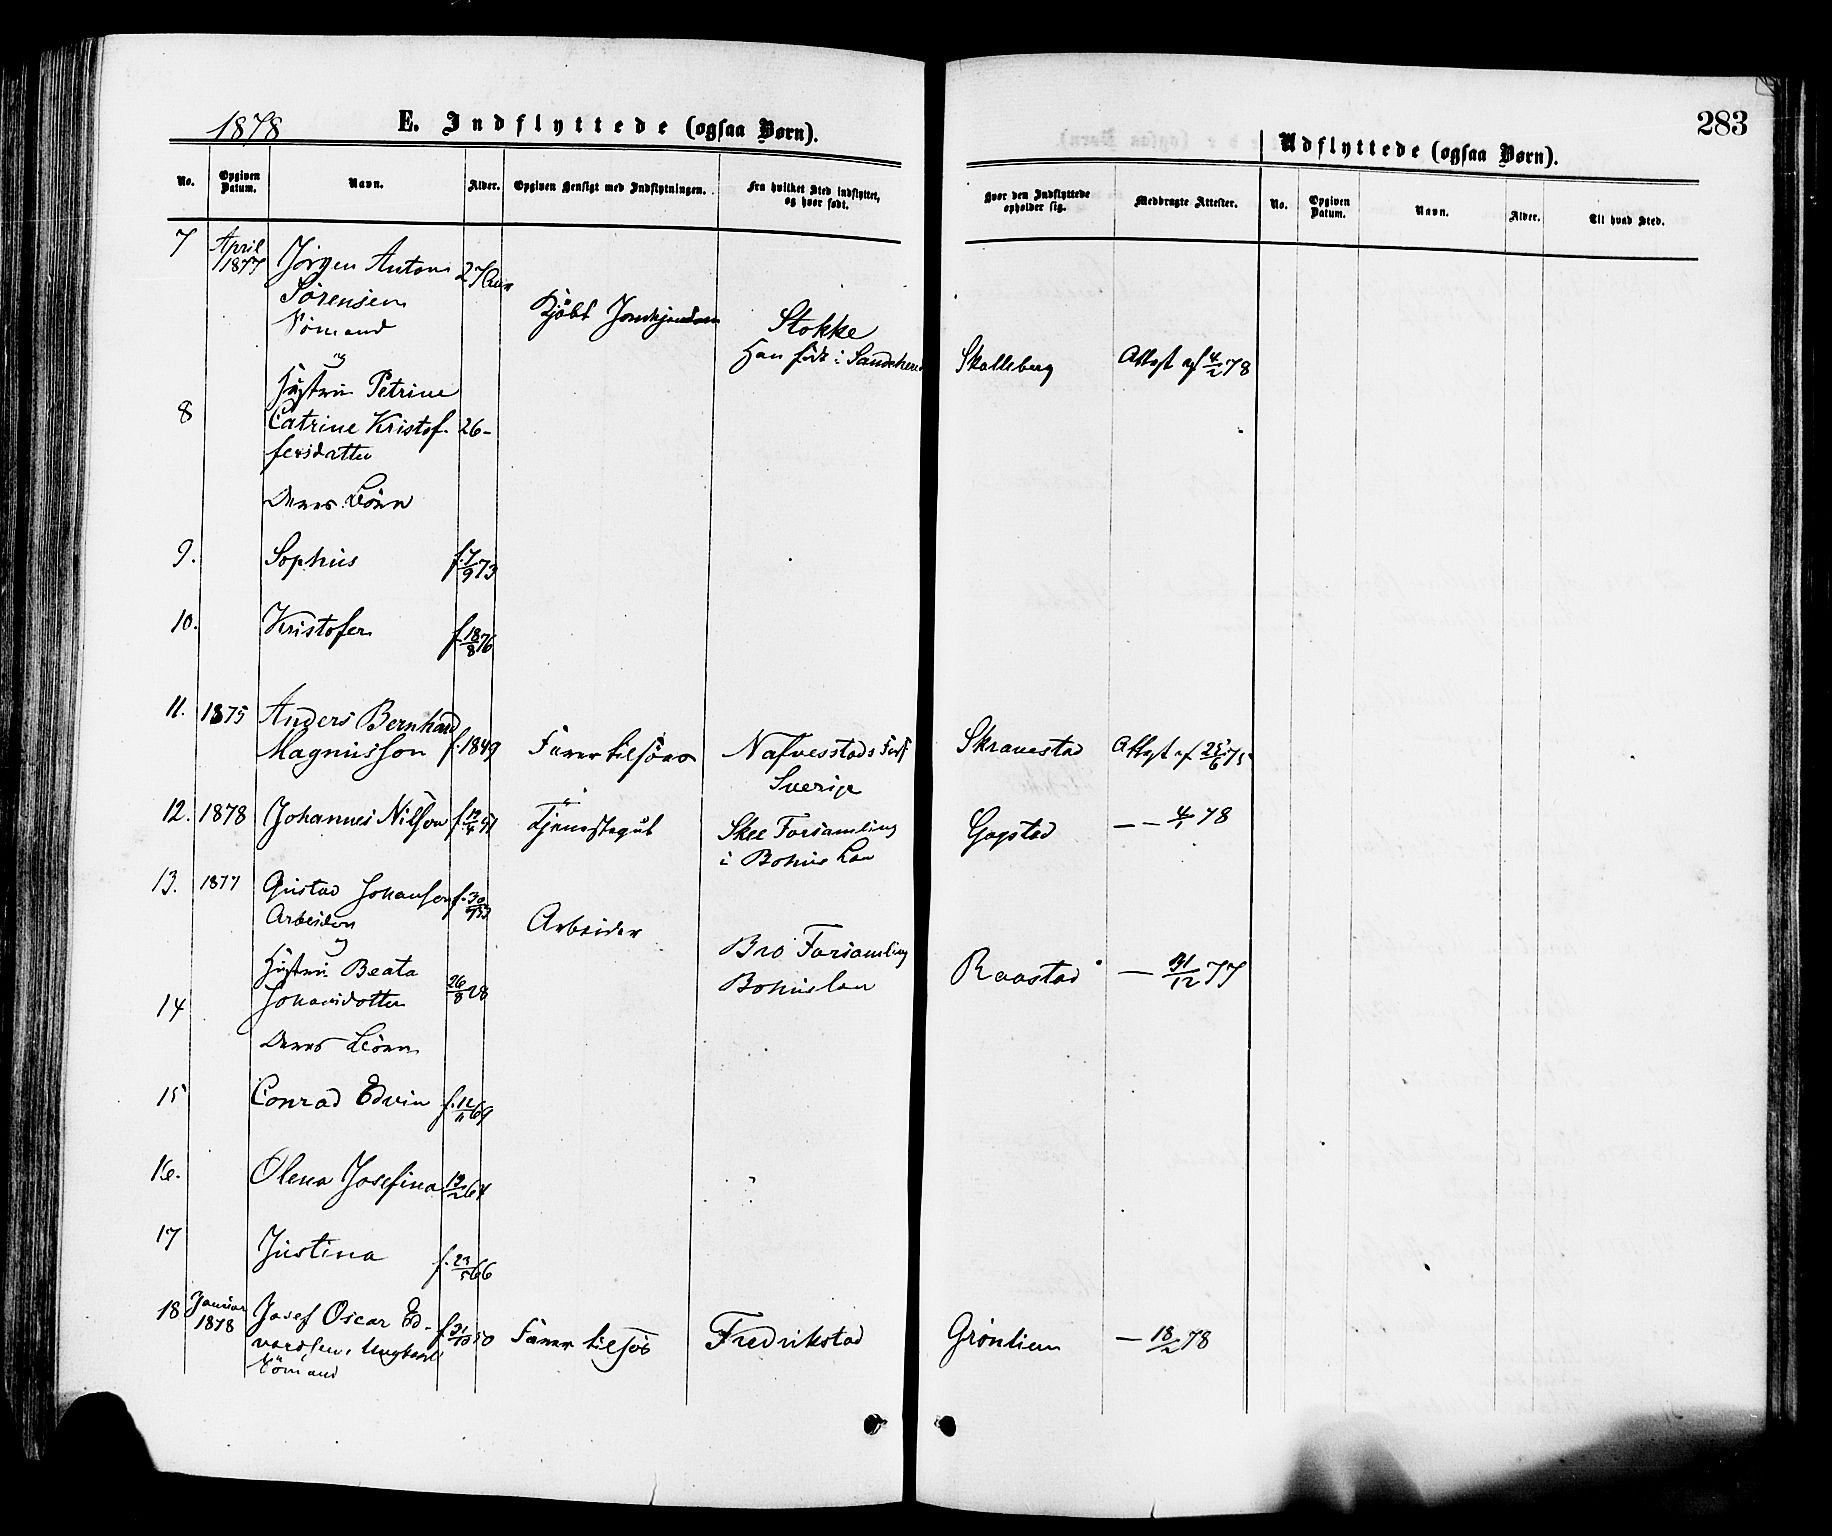 1878
E. Indflyttede (ogsaa Børn).
283
Udflyttede (ogsaa Børn).
No. Opgiven Datum. Navn. Alder. Opgiven Hensigt med Indflytningen. Fra hvilket Sted indflyttet, og hvor født. Hvor den Indflyttede opholder sig. Medbragte Attester. No. Opgiven Datum. Navn. Alder. Til hvad Sted.
7 April 1877 Jörgen Anton 27 Aar
Sörensen
Sömand
Kjöbt
Stokke
Han född i Sandeherred Skalleberg Attest af 4/2 78
og
Hustru Petrine
8 Catrine Kristof- 26 -
fersdatter
Deres Börn
9. Sophus f. 7/9 73
10. Kristofer f. 18/8 76
11. 1875 Anders Bernhard
Magnusson f. 1849 Farer tilsöes Nafvesstads Skranestad Attest af 25/6 75
Sverige
12. 1878 Johannes Nilson Tjenestegut Skee Forsamling Gogstad — — 4/1 78
i Bohus Len
13. 1877 Gustad Johansen f. 30
Arbeider Arbeider
og
Bro Forsamling
Hustru Beata Bohuslen Raastad — 31/12 77
14 Johansdotter 26/8 28
Deres Börn
15 Conrad Edvin f. 12/11 69
16. Olena Josefina 19/2 64
17 Justina f. 23/5 66
18 Januar 1878 Josef Oscar Ed-
vardsen, Ungkarl f. 31/10 50 Farer tilsös Fredrikstad Grönlien — 18/2 78
Sömand